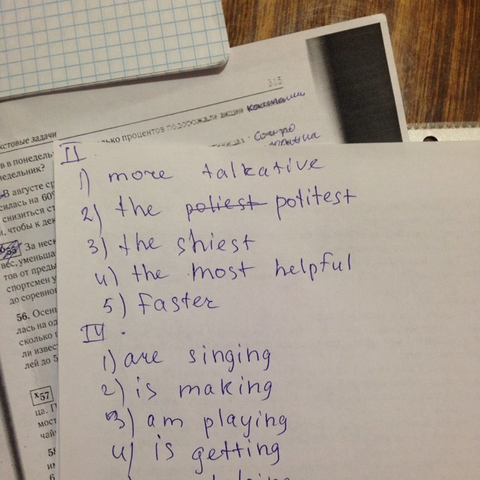 315
колько процентов подорожали акции компании
кстовые задачи
в в понедель
недельник?
В августе ср
силась на 60%
снизиться ст
, чтобы к дек
За неск
вес, уменьша
тов от предь
спортсмен у
до соревно
56. Осен
лась на од
сколько
ли извес
лей до 5
х57
ца. П
мост
чай
58
им
II
1) more talkative
2) the poliest politest
3) the shiest
4) the most helpful
5) faster
IV.
1) are singing
2) is making
3) am playing
4) is getting